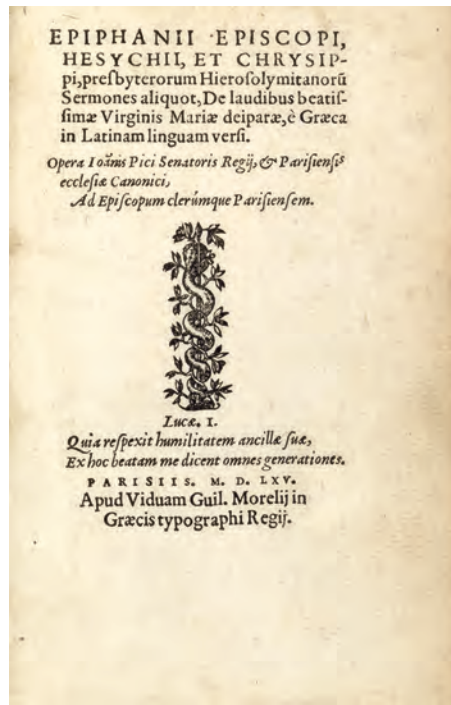 EPIPHANII EPISCOPI,
HESYCHII, ET CHRYSIP-
pi,preſbyterorum Hieroſolymitanorũ
Sermones aliquot,De laudibus beatiſ-
ſimæ Virginis Mariæ deiparæ,è Græca
in Latinam linguam verſi.
Opera Ioãnis Pici Senatoris Regij, & Pariſienſis
eccleſiæ Canonici,
Ad Epiſcopum clerúmque Pariſienſem.
Lucæ. 1.
Quia reſpexit humilitatem ancillæ ſuæ,
Ex hoc beatam me dicent omnes generationes.
PARISIIS. M. D. LXV.
Apud Viduam Guil. Morelij in
Græcis typographi Regij.